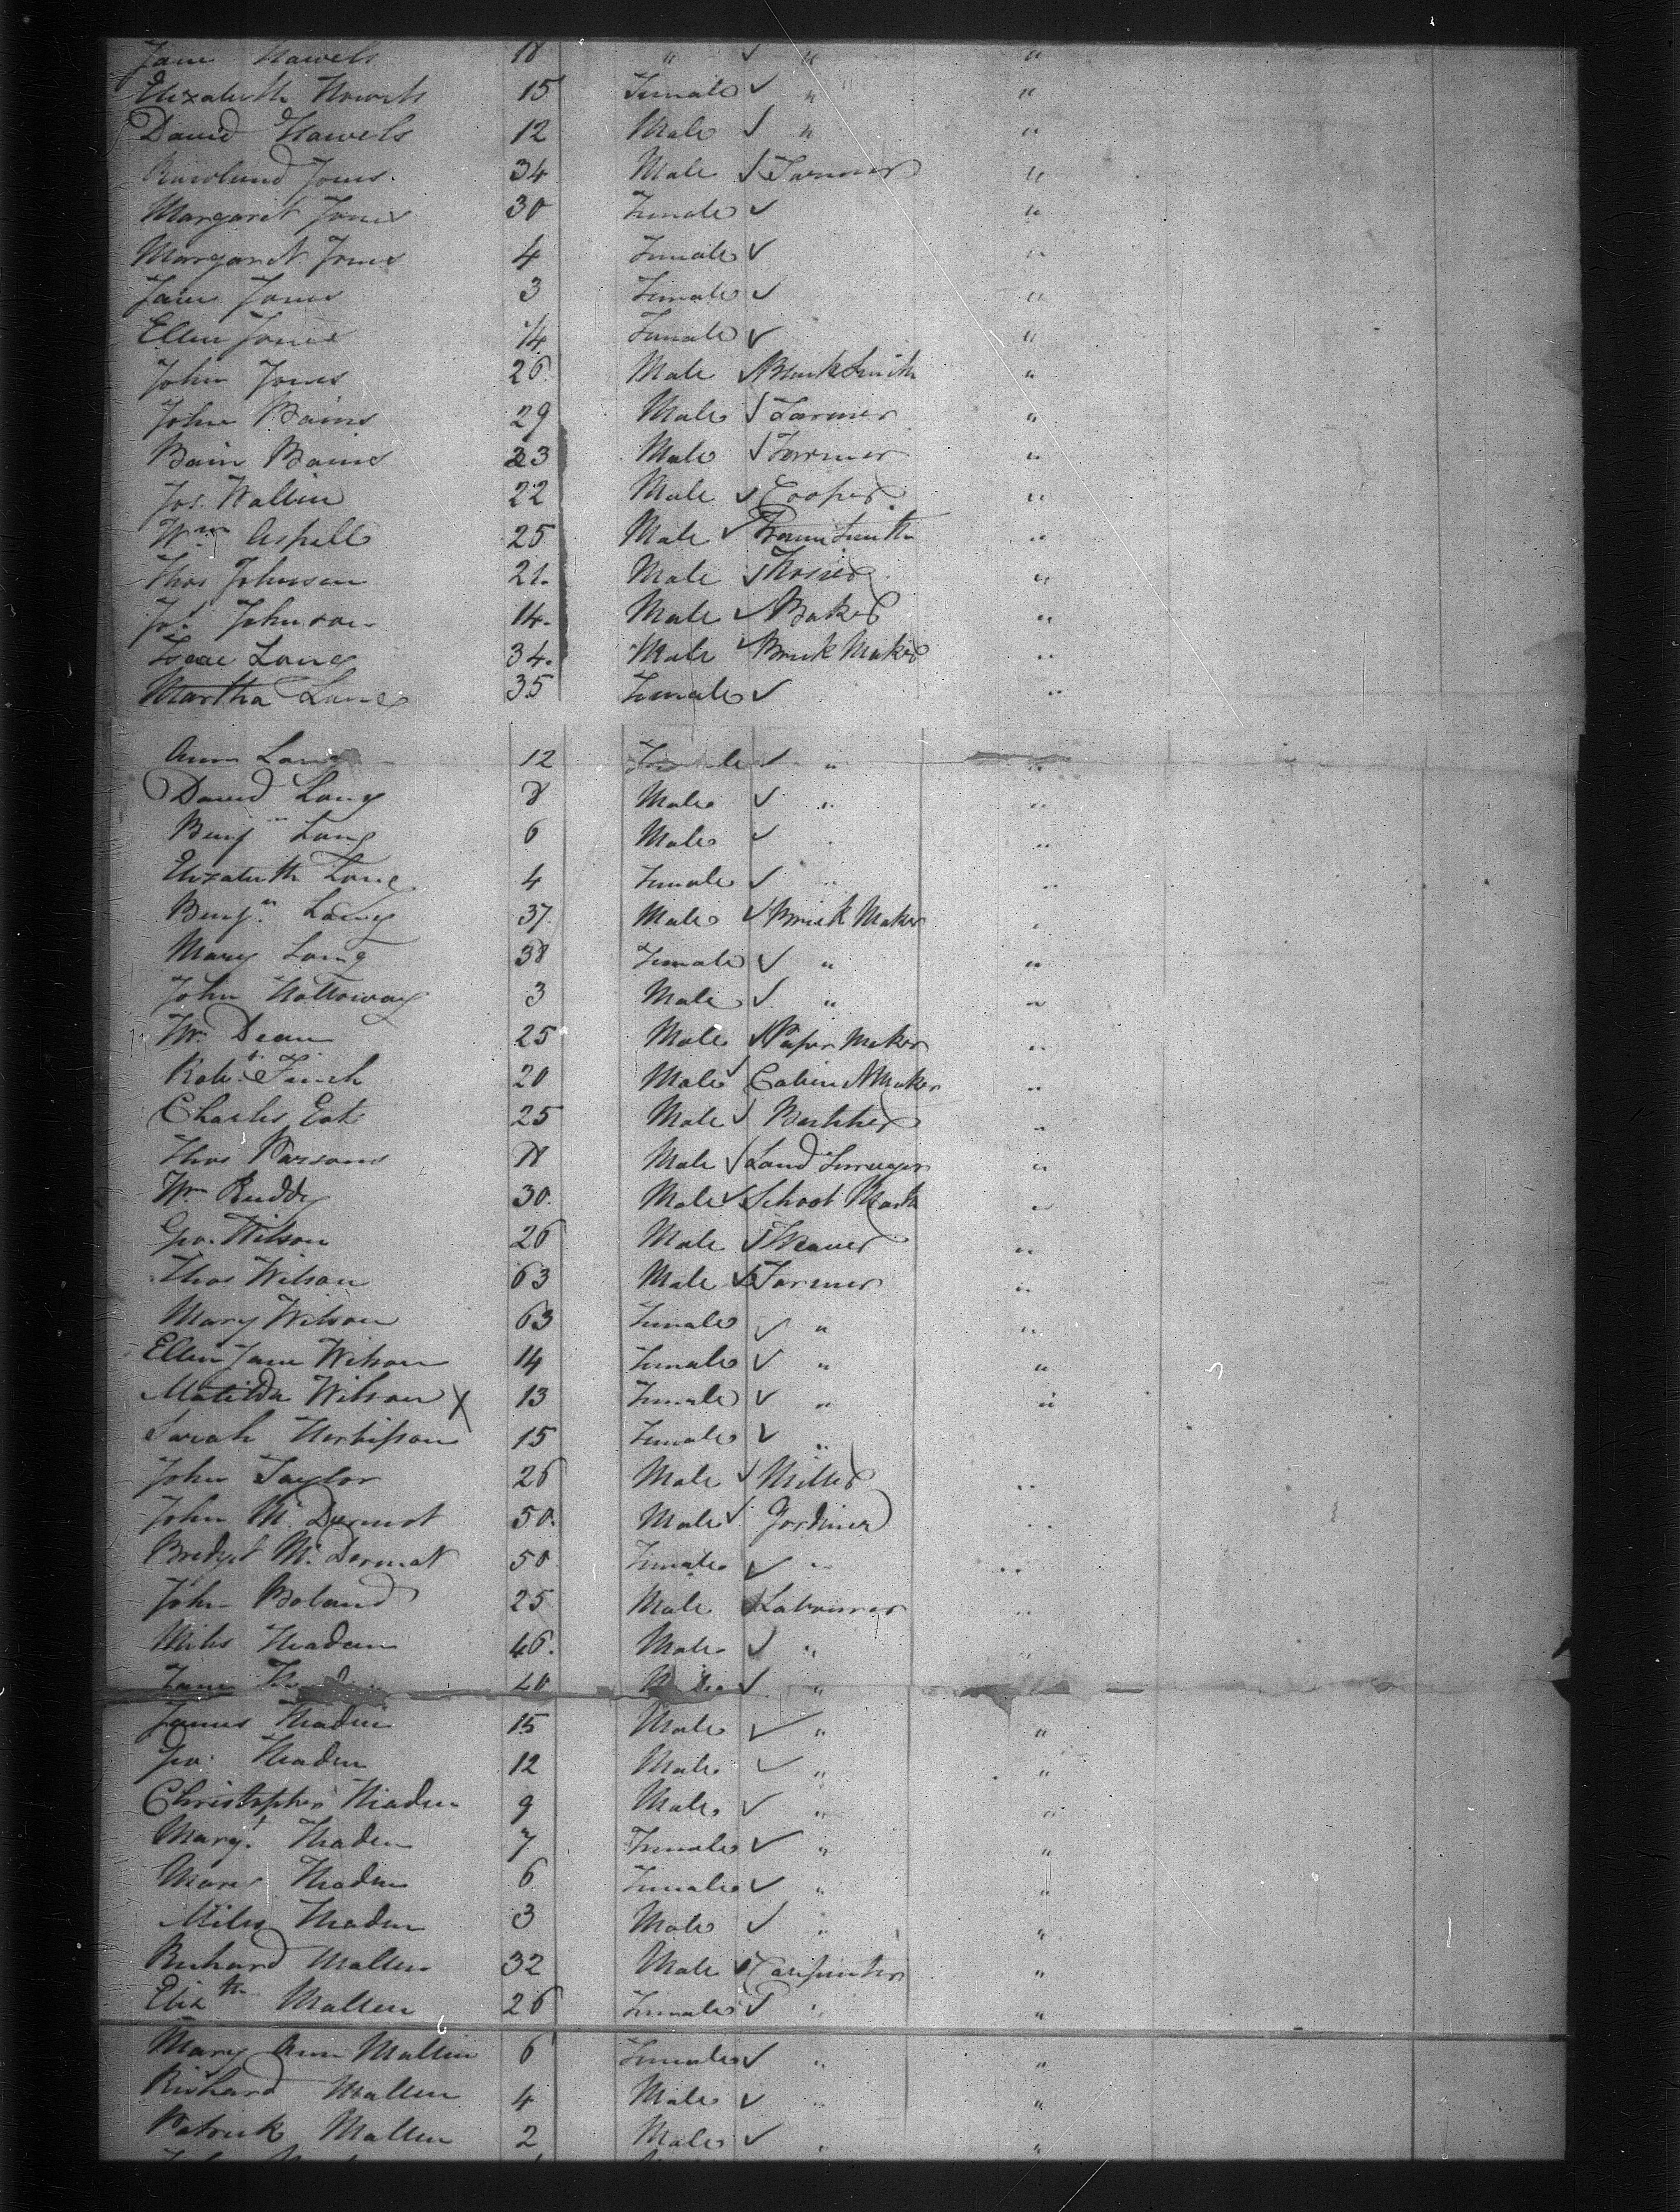 Jane Howels 18 " ✓ " "
Elizabeth Howels 15 Female ✓ " "
David Howels 12 Male ✓ " "
Rowland Jones. 34 Male ✓ Farmer "
Margaret Jones 30 Female ✓ "
Margaret Jones 4 Female ✓ "
Jane Jones 3 Female ✓ "
Ellen Jones Female ✓ "
John Jones 26. Male ✓ BlackSmith "
John Bains 29 Male ✓ Farmer "
Bain Bains 23 Male ✓ Farmer "
Jos. Wallin 22 Male ✓ Cooper "
Wm Aspill 25 Male ✓ Smith "
Thos Johnson 21. Male ✓ Hosier "
Jos. Johnson 14. Male ✓ Baker "
Isaac Long 34. Male ✓ Brick Maker "
Martha Long 35 Female ✓ "
Ann Long 12 Female ✓ " "
David Long 8 Male ✓ " "
Benjn Long 6 Male ✓ "
Elizabeth Long 4 Female ✓ " "
Benjn. Long 37. Male ✓ Brick Maker "
Mary Long 38 Female ✓ " "
John Holloway 3 Male ✓ " "
Wm Dean 25 Male ✓ Paper Maker "
Robt. Finch 20 Male ✓ Cabinet Maker "
Charles 25 Male ✓ Butcher "
Thos Parsons Male ✓ Land Surveyor "
Wm Ruddy 30. Male ✓ School Mastr "
Geo. Wilson 26 Male ✓ Weaver "
Thos Wilson 63 Male ✓ Farmer "
Mary Wilson 63 Female ✓ " "
Ellen Jane Wilson 14 Female ✓ " "
Matilda Wilson X 13 Female ✓ " "
Sarah Herbisson 15 Female ✓ "
John Taylor 26 Male ✓ Miller "
John Mc Dermot 50. Male ✓ Gardiner "
Bridget Mc Dermot 50 Female ✓ " "
John Boland 25 Male ✓ Labourer "
Miles Headen 46. Male ✓ " "
Jane 40 ✓ "
James Headen 15 Male ✓ " "
Geo. Headen 12 Male ✓ " "
Christopher Headen 9 Male ✓ " "
Margt. Headen 7 Female ✓ " "
Mary Headen 6 Female ✓ " "
Miles Headen 3 Male ✓ " "
Richard Mallen 32 Male ✓ Carpenter "
Elizth Mallen 26 Female ✓ " "
Mary Ann Mallen 6 Female ✓ " "
Richard Mallen 4 Male ✓ " "
Patrick Mallen 2 Male ✓ " "